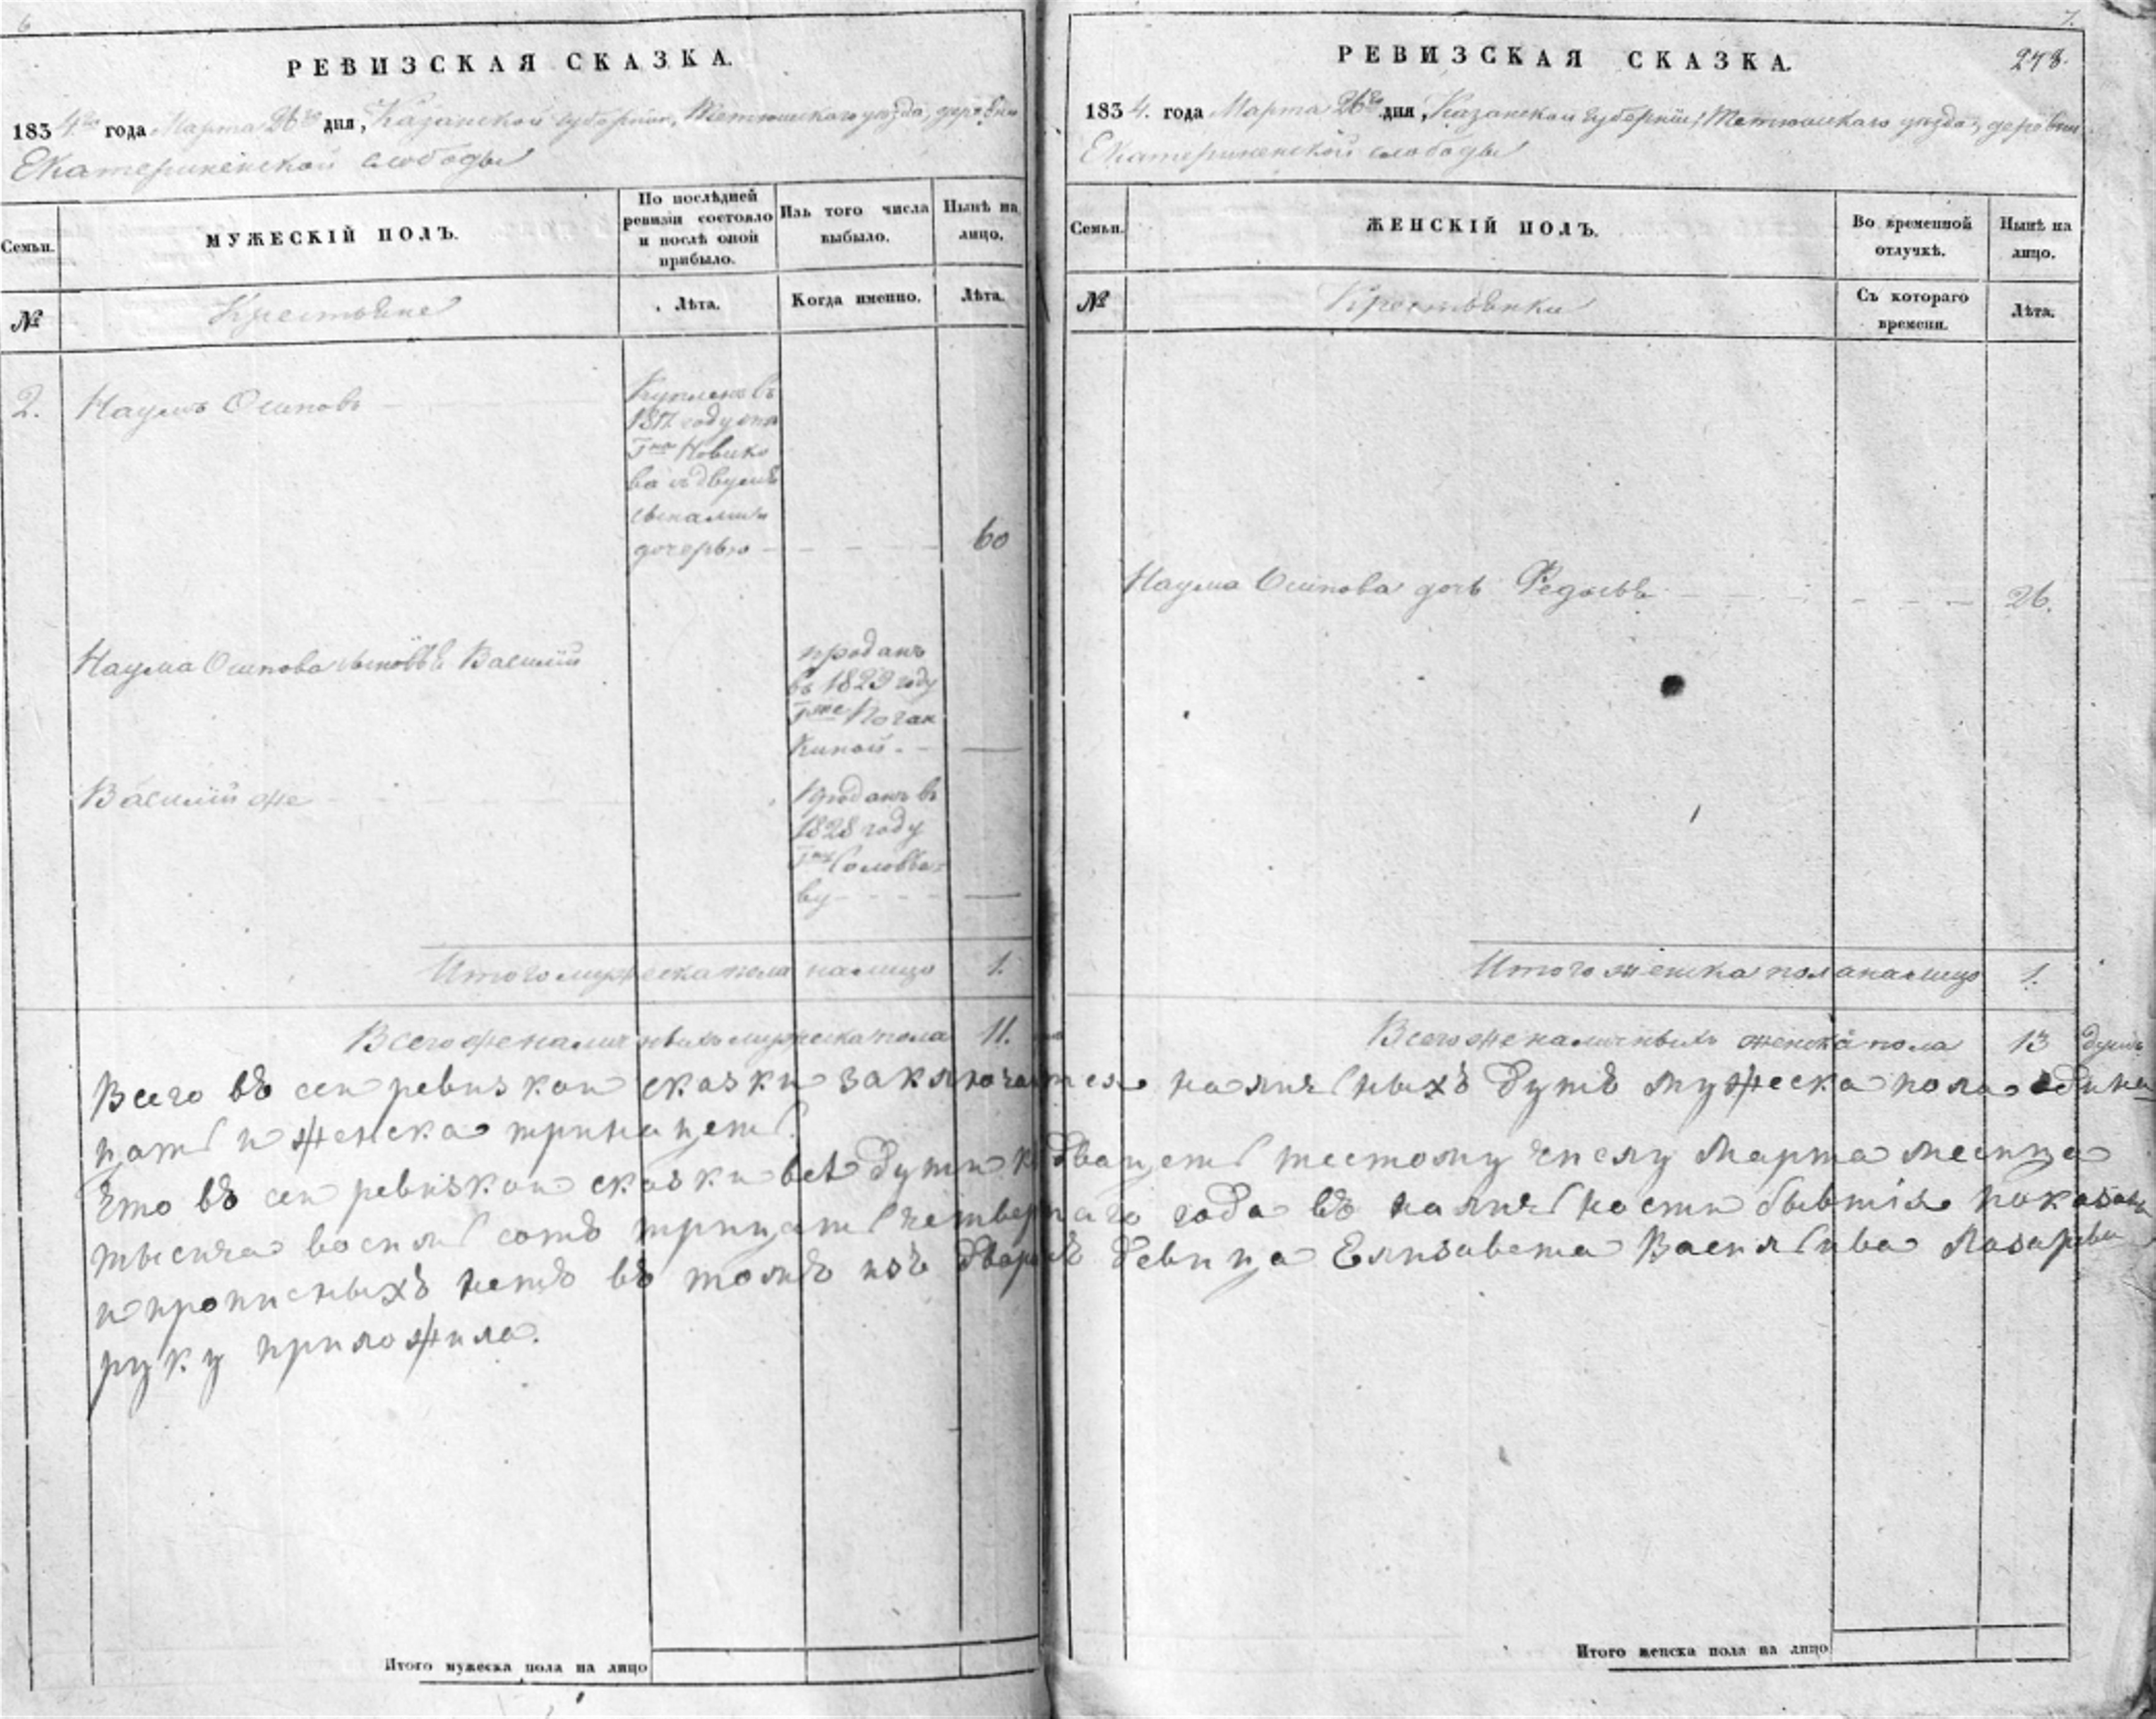 6
РЕВИЗСКАЯ СКАЗКА.
1834го года Марта 26го дня, Казанской губернии, Тетюшскаго уѣзда, деревни
Екатериненской слободы
Семьи.
МУЖЕСКІЙ ПОЛЪ.
По послѣдней
ревизіи состояло
и послѣ оной
прибыло.
Изъ того числа
выбыло.
Нынѣ на
лицо.
№
Крестьяне
Лѣта.
Когда именно.
Лѣта.
2.
Наумъ Осиповъ
Купленъ въ
1817 году отъ
Гна Новико
ва съ двумя
сынами и
дочерью
60
Наума Осипова сыновья Василій
проданъ
въ 1829 году
Гже Почан
киной
Василій же
проданъ въ
1828 году
Гну Соловье
ву
Итого мужеска пола на лицо 1.
Всего же наличныхъ мужеска пола 11.
7.
РЕВИЗСКАЯ СКАЗКА.
278.
1834. года Марта 26го дня, Казанской губерніи, Тетюшскаго уѣзда, деревни
Екатериненской слободы
Семьи.
ЖЕНСКІЙ ПОЛЪ.
Во временной
отлучкѣ.
Нынѣ на
лицо.
№
Крестьянки
Съ котораго
времени.
Лѣта.
Наума Осипова дочь Федосья
26.
Итого женска пола на лицо 1.
Всего же наличныхъ женска пола 13 душъ
Всего въ сеи ревизкои скозки заключаится наличныхъ душъ мужеска пола одина
цать и женска тринацеть.
Что въ сеи ревизкои скозки все души к двацеть шестому числу Марта месица
тысича восимь сотъ трицать четвертаго года въ наличности бывшія показаны
и прописныхъ нетъ въ томъ изъ дворянъ девица Елизавета Васильива Лазарева
руку приложила.
Итого мужеска пола на лицо
Итого женска пола на лицо